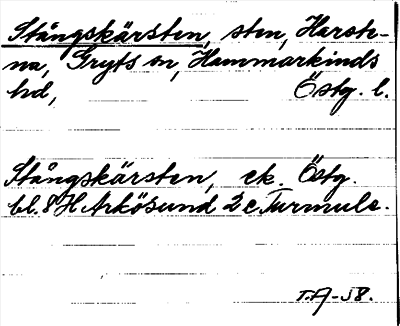 Stångskärsten, sten, Harste-
na, Gryts sn, Hammarkinds
hd, Östg. l.
Stångskärsten, ek. Östg.
bl. 8 H Arkösund 2 c Turmuls.
T.A-38.